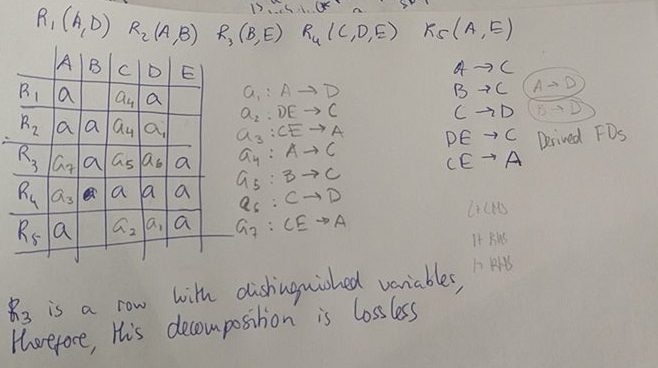 R₁(A,D) R₂(A,B) R₃(B,E) R₄(C,D,E) R₅(A,E)
A B C D E
R₁ a a₄ a
R₂ a a a₄ a₁
R₃ a₇ a a₅ a₆ a
R₄ a₃ a a a
R₅ a a₂ a₁ a
a₁ : A → D
a₂ : DE → C
a₃ : CE → A
a₄ : A → C
a₅ : B → C
a₆ : C → D
a₇ : CE → A
A → C
B → C A → D
C → D B → D
DE → C Derived FDs
CE → A
R₃ is a row with distinguished variables,
therefore, this decomposition is lossless